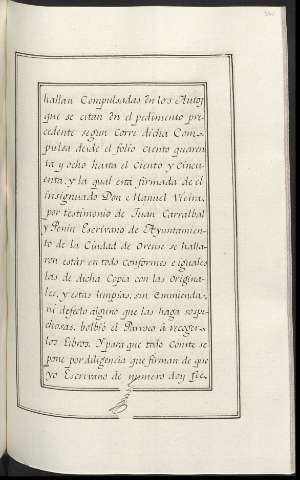 hallan Compulsadas en los Autos
que se citan en el pedimento pre
cedente segun corre dicha Com-
pulsa desde el folio ciento quaren
ta y ocho hasta el Ciento y Cincu
enta, y la qual está firmada de el
insignuado Don Manuel Vieira,
por testimonio de Juan Carralbal
y Penin Escrivano de Ayuntamien
to de la Ciudad de Orense se halla
ron estár en todo conformes e iguales
las de dicha Copia con las origina-
les, y estas limpias, sin enmienda,
ni defecto alguno que las haga sospe
chosas, bolbió el Parroco á recoger
los libros. Y para que todo Conste se
pone por diligencia que firman de que
yo Escrivano de numero doy fee.